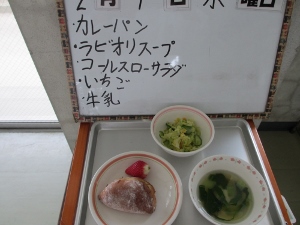 2月 日 水 曜日
・カレーパン
・ラビオリスープ
・コールスローサラダ
・いちご
・牛乳